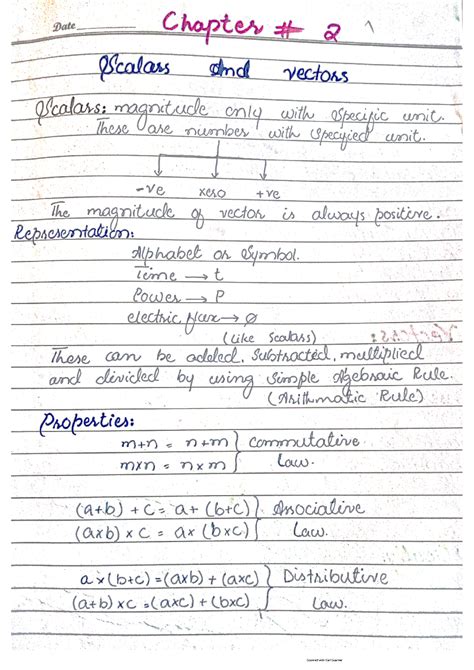 Date
Chapter # 2
Scalars and vectors
Scalars: magnitude only with specific unit.
These are number with specyied unit.
-ve xero +ve
The magnitude of vector is always positive.
Representation:
Alphabet or symbol.
Time → t
Power → P
electric flux → ∅
(Like Scalars)
These can be added, Subtracted, multiplied
and divided by using Simple Agebraic Rule.
(Arithmatic Rule)
Properties:
m+n = n+m } Commutative
m×n = n×m } Law.
(a+b) + c = a + (b+c) } Associative
(a×b) × c = a× (b×c) } Law.
a×(b+c) = (a×b) + (a×c) } Distributive
(a+b) ×c = (a×c) + (b×c) } Law.
Scanned with CamScanner